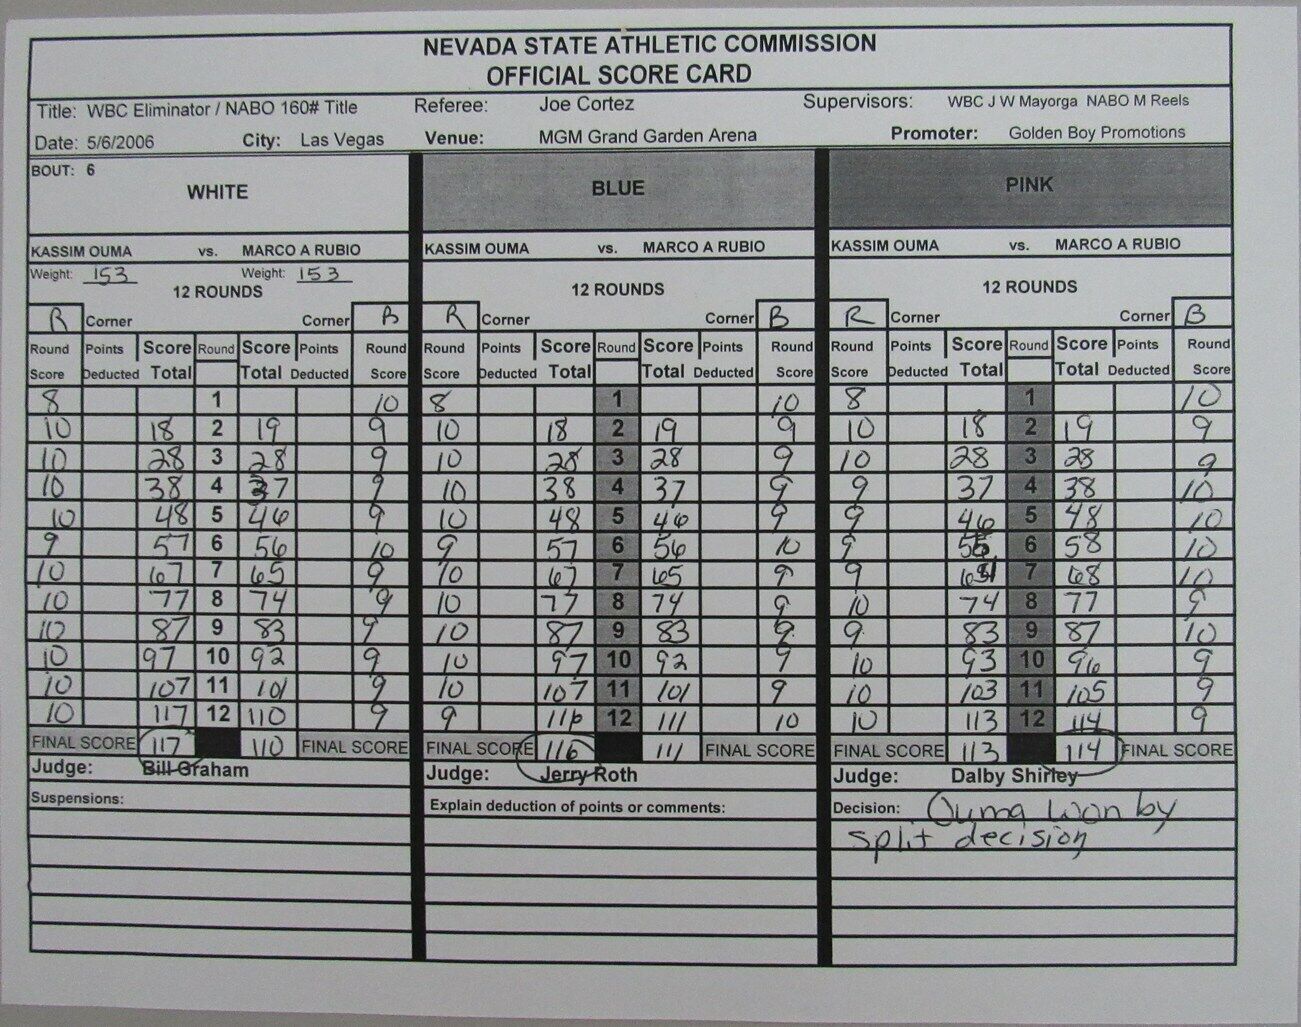 NEVADA STATE ATHLETIC COMMISSION
OFFICIAL SCORE CARD
Title: WBC Eliminator / NABO 160# Title Referee: Joe Cortez Supervisors: WBC J W Mayorga NABO M Reels
Date: 5/6/2006 City: Las Vegas Venue: MGM Grand Garden Arena Promoter: Golden Boy Promotions
BOUT: 6
WHITE BLUE PINK
KASSIM OUMA vs. MARCO A RUBIO KASSIM OUMA vs. MARCO A RUBIO KASSIM OUMA vs. MARCO A RUBIO
Weight: 153 Weight: 153
12 ROUNDS 12 ROUNDS 12 ROUNDS
R Corner Corner B R Corner Corner B R Corner Corner B
Round Points Score Round Score Points Round Round Points Score Round Score Points Round Round Points Score Round Score Points Round
Score Deducted Total Total Deducted Score Score Deducted Total Total Deducted Score Score Deducted Total Total Deducted Score
8 1 10 8 1 10 8 1 10
10 18 2 19 9 10 18 2 19 9 10 18 2 19 9
10 28 3 28 9 10 28 3 28 9 10 28 3 28 9
10 38 4 37 9 10 38 4 37 9 9 37 4 38 10
10 48 5 46 9 10 48 5 46 9 9 46 5 48 10
9 57 6 56 10 9 57 6 56 10 9 55 6 58 10
10 67 7 65 9 10 67 7 65 9 9 64 7 68 10
10 77 8 74 9 10 77 8 74 9 10 74 8 77 9
10 87 9 83 9 10 87 9 83 9 9 83 9 87 10
10 97 10 92 9 10 97 10 92 9 10 93 10 96 9
10 107 11 101 9 10 107 11 101 9 10 103 11 105 9
10 117 12 110 9 9 116 12 111 10 10 113 12 114 9
FINAL SCORE 117 110 FINAL SCORE FINAL SCORE 116 111 FINAL SCORE FINAL SCORE 113 114 FINAL SCORE
Judge: Bill Graham Judge: Jerry Roth Judge: Dalby Shirley
Suspensions: Explain deduction of points or comments: Decision: Ouma won by
split decision